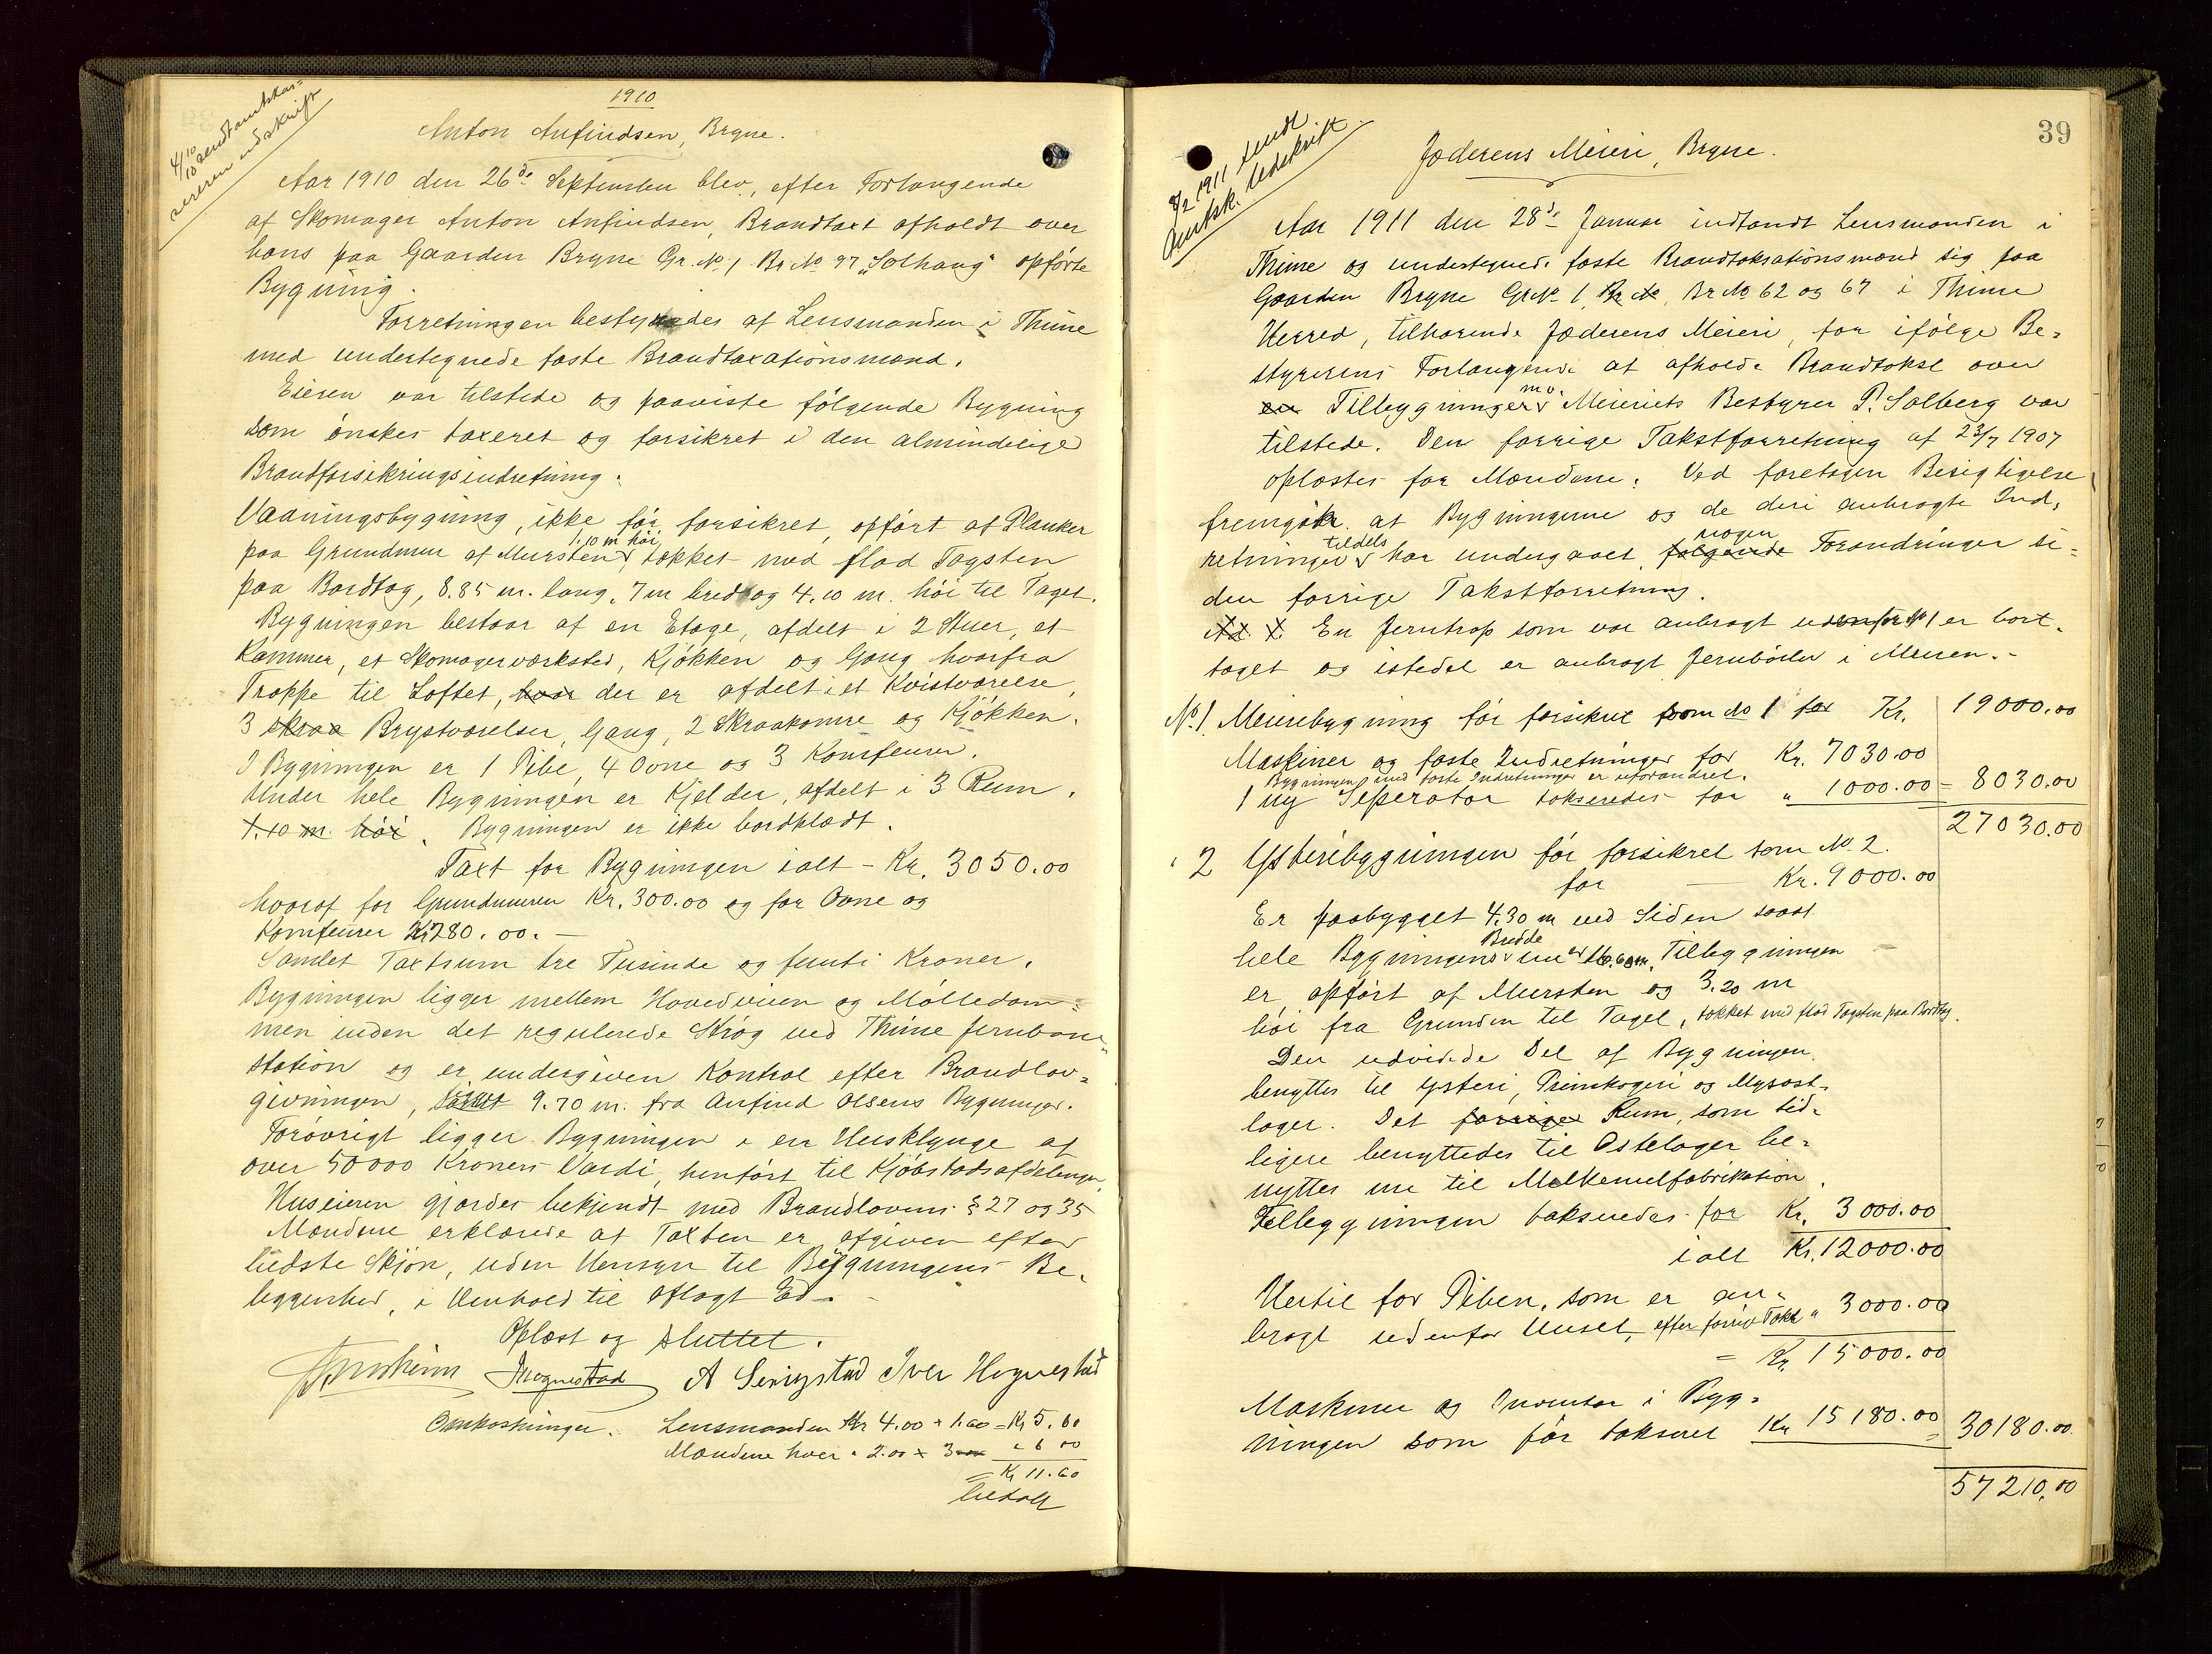 4/10 10 sendt amtskas=
sereren udskrift
1910
Anton Anfindsen, Bryne.
Aar 1910 den 26de September blev, efter Forlangende
af Skomager Anton Anfindsen, Brandtaxt afholdt over
hans paa Gaarden Bryne Gr. No 1 Br No 97 "Solhaug" opførte
Bygning.
Forretningen bestyredes af Lensmanden i Thime
med undertegnede faste Brandtaxationsmænd.
Eieren var tilstede og paaviste følgende Bygning
som ønskes taxeret og forsikret i den almindelige
Brandforsikringsindretning.
Vaaningsbygning, ikke før forsikret, opført af Planker
paa Grundmur af Mursten 1.10 m høi, tækket med flad Tagsten
paa Bordtag, 8.85 m. lang, 7 m bred og 4.10 m. høi til Taget.
Bygningen bestaar af en Etage, afdelt i 2 Stuer, et
Kammer, et Skomagerværksted, Kjøkken og Gang hvorfra
Trappe til Loftet, hvor der er afdelt i et Kvistværelse,
3 skraa Brystværelser, Gang, 2 Skraakamre og Kjøkken.
I Bygningen er 1 Pibe, 4 Ovne og 3 Komfeurer.
Under hele Bygningen er Kjelder, afdelt i 3 Rum.
1.10 m. høi. Bygningen er ikke bordklædt.
Taxt for Bygningen ialt - Kr. 3050.00
hvoraf for Grundmuren Kr. 300.00 og for Ovne og
Komfeurer Kr 280.00. -
Samlet Taxtsum tre Tusinde og femti Kroner.
Bygningen ligger mellem Hovedveien og Mølledam=
men inden det regulerede Strøg ved Thime Jernbane=
station og er undergiven Kontrol efter Brandlov=
givningen, 9.70 m. fra Anfind Olsens Bygninger.
Forøvrigt ligger Bygningen i en Husklynge af
over 50000 Kroners Værdi, henført til Kjøbstadsafdelingen.
Huseieren gjordes bekjendt med Brandlovens § 27 og 35
Mændene erklærede at Taxten er afgiven efter
bedste Skjøn, uden Hensyn til Bygningens Be=
liggenhed, i Henhold til aflagt Ed. -
Oplæst og sluttet.
Hognestad A Serigstad Iver Hognestad
Omkostninger. Lensmanden Kr 4.00 + 1.60 = Kr 5.60
Mændene hver " 2.00 x 3 " 6 00
= Kr 11.60
betalt
39
8/2 1911 sendt
Amtsk. Udskrift.
Jæderens Meieri, Bryne.
Aar 1911 den 28de Januar indfandt Lensmanden i
Thime og undertegnede faste Brandtakstationsmænd sig paa
Gaarden Bryne Gr No 1 Br No, Br No 62 og 67 i Thime
Herred, tilhørende Jæderens Meieri, for ifølge Be=
styrerens Forlangende at afholde Brandtakst over
en Tilbygninger m.v. Meieriets Bestyrer P. Solberg var
tilstede. Den forrige Takstforretning af 23/7 1907
oplæstes for Mændene. Ved foretagen Besigtigelse
fremgik at Bygningerne og de deri anbragte Ind=
retninger tildels har undergaaet følgende nogen Forandringer si=
den forrige Takstforretning.
Ad 1. En Jerntrap som var anbragt udenfor No 1 er bort=
taget og istedet er anbragt Jernbøiler i Muren. -
No. 1. Meieribygning før forsikret som No 1 for Kr. 19000.00
Maskiner og faste Indretninger for Kr. 7030.00
Bygningen med faste Indretninger er uforandret.
1 ny Seperator takseredes for " 1000.00 = 8030.00
27030.00
" 2 Ysteribygningen før forsikret som No. 2.
for — Kr. 9000.00
Er paabygget 4.30 m ved Siden samt
hele Bygningens Bredde Tilbygningen
er opført af Mursten og 3.20 m
høi fra Grunden til Taget, tækket med flad Tagsten paa Bordtag.
Den udvidede Del af Bygningen
benyttes til Ysteri, Primkogeri og Mysost=
lager. Det forrige Rum, som tid=
ligere benyttedes til Ostelager be=
nyttes nu til Melkemelfabrikation.
Tilbygningen takseredes for Kr. 3000.00
ialt Kr. 12000.00
Hertil for Piben, som er an=
bragt udenfor Huset, efter forrige Takst " 3000.00
= Kr. 15000.00
Maskiner og Inventar i Byg=
ningen som før takseret Kr 15180.00 = 30180.00
57210.00